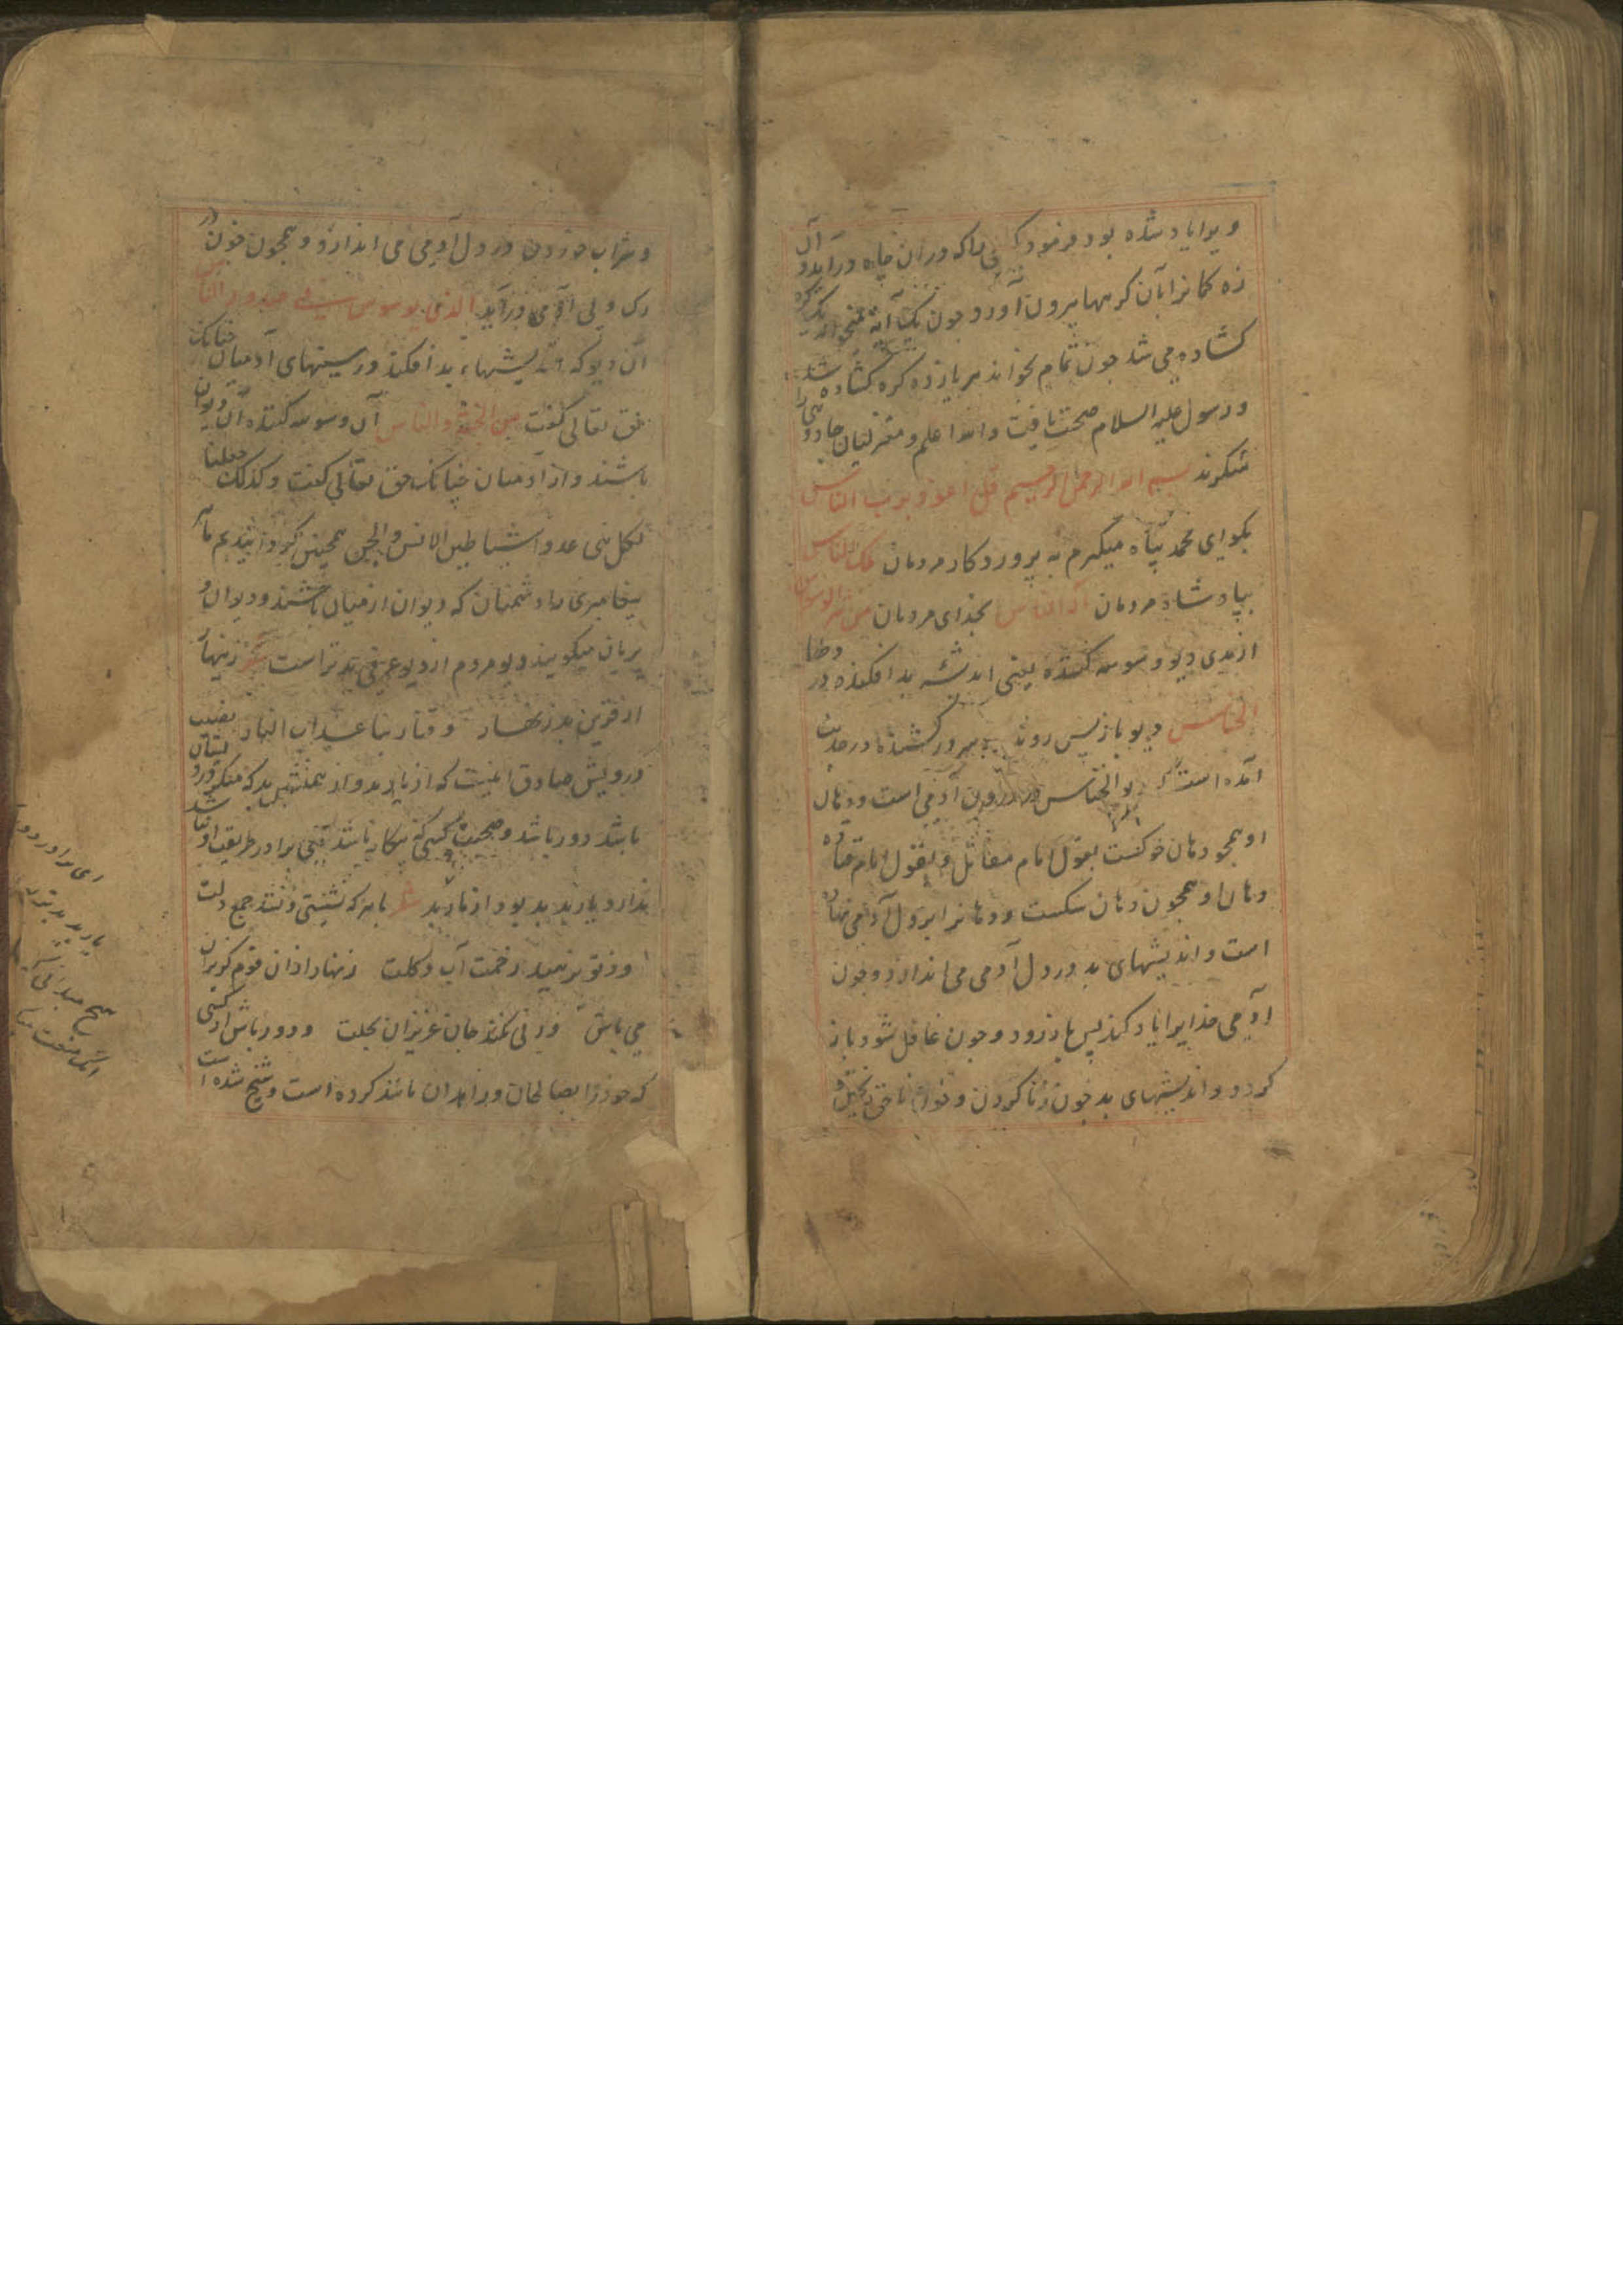 ویرا یاد شده بود فرمود کسی را که در آن چاه درآید و آن
زه کمانرا بآن کرهها بیرون آورد و چون یک آیة میخواند یک کره
کشاده می شد چون تمام بخواند هر یازده کره کشاده شد
و رسول علیه السلام صحت یافت والله اعلم و معتزلیان جادویی را
منکرند بسم الله الرحمن الرحیم قل اعوذ برب الناس
بکو ای محمد پناه میکیرم به پروردکار مردمان ملک الناس
بپادشاه مردمان اله الناس بخدای مردمان من شر الوسواس
از بدی دیو وسوسه کننده یعنی اندیشه بد افکننده در دلها
الخناس دیو بازپس رونده در حدیث
آمده است که دیو الخناس در درون آدمی است و دهان
او همچو دهان خوکست بقول امام مقاتل و بقول امام قتاده
دهان او همچون دهان سکست و دهانرا بر دل آدمی نهاده
است و اندیشهای بد در دل آدمی می اندازد و چون
آدمی خدایرا یاد کند پس باز رود و چون غافل شود باز
کردد و اندیشهای بد چون زنا کردن و خون ناحق
و شراب خوردن در دل آدمی می اندازد و همچون خون در
رک و پی آدمی درآید الذی یوسوس فی صدور الناس
آن دیو که اندیشهاء بد افکند در سینهای آدمیان چنانک
حق تعالی کفت من الجنة والناس آن وسوسه کننده از دیوان
باشند و از آدمیان چنانک حق تعالی کفت و کذلک جعلنا
لکل نبی عدوا شیاطین الانس والجن همچنین کردانیدیم هر
پیغامبری را دشمنان که دیوان آدمیان باشند و دیوان و
پریان میکویند دیو مردم از دیو بدتر است شعر زینهار
از قرین بد زنهار وقنا ربنا عذاب النار
درویش صادق آنست که از یار بد و از همنشین بد که منکر
باشد دور باشد و صحبت
ندارد یار بد بد بود از مار بد شعر با هر که نشستی و نشد جمع دلت
وز تو نرمید زحمت آب و کلت زنهار از آن قوم کریزان
می باش ورنی نکند جان عزیزان بحلت و دور باش از کسی
که خود را بصالحان و زاهدان مانند کرده است و شیخ شده است